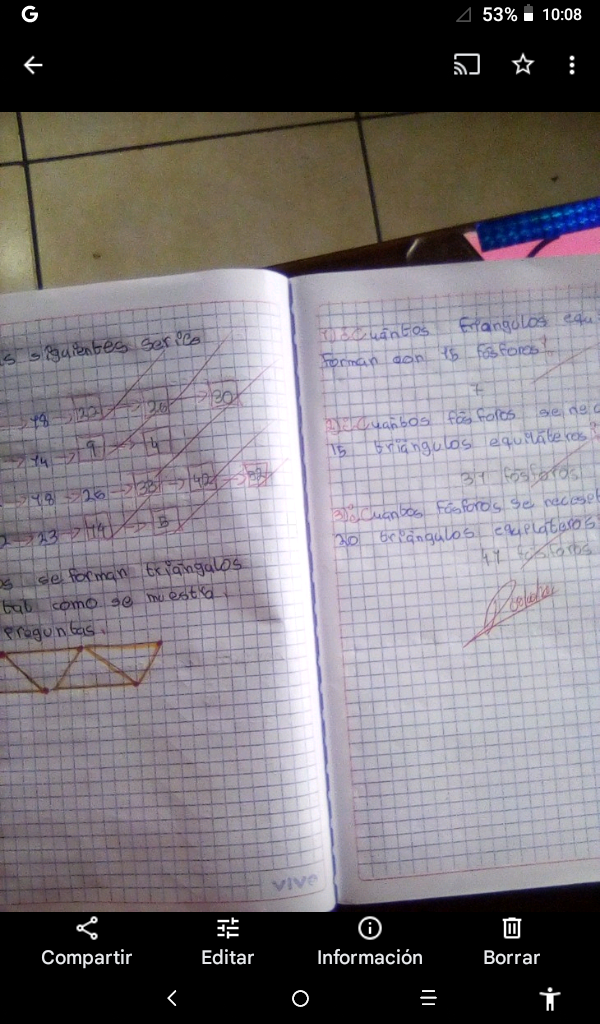 G 53% 10:08
s siguientes serie
18 → 22 → 26 → 30
→ 14 → 9 → 4
→ 18 → 26 → 33 → 42 →
→ 23 → 14 → 5
os se forman triángulos
tal como se muestra.
preguntas.
vivo
1) ¿Cuántos triangulos equ
forman con 15 fósforos?
7
2) ¿Cuantos fósforos se ne
15 triángulos equiláteros?
31 fósforos
3) ¿Cuantos fósforos se neceset
20 triángulos equiláteros?
41 fósforos
Compartir Editar Información Borrar